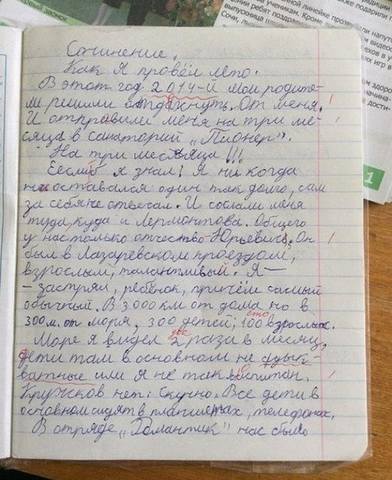 Сочинение.
Как я провёл лето.
В этот год 2014-й мои родите-
ли решили отдохнуть. От меня.
И отправили меня на три ме-
сяца в санаторий „Пионер".
На три месяца!!!
Если б я знал! Я ни когда
не оставался один так долго, сам
за себя не отвечал. И сослали меня
туда, куда и Лермонтова. Общего
у нас только отчество Юрьевич. Он
был в Лазаревском проездом,
взрослый, талантливый. Я —
- застрял, ребёнок, причём самый
обычный. В 3.000 км от дома но в
300 м. от моря, 300 детей, 100 взрослых.
сто
Море я видел 2 раза в месяц,
две
дети там в основном не
или я не так воспитан.
Кружков нет. Скучно. Все дети в
основном сидят в планшетах, телефонах.
В отряде „Романтик" нас было